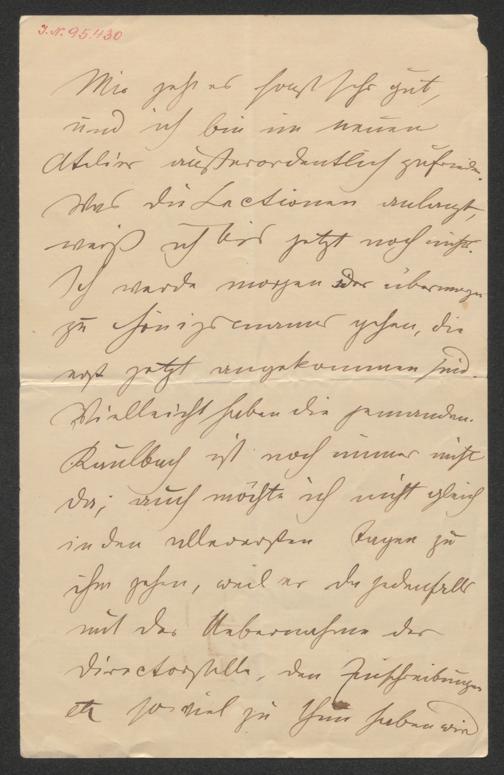 J.N. 95.430
Mir geht es sonst sehr gut,
und ich bin im neuen
Atelier außerordentlich zufrieden.
Was die Lectionen anlangt,
weiß ich bis jetzt noch nichts.
Ich werde morgen oder übermorgen
zu Königsmanns gehen, die
erst jetzt angekommen sind.
Vielleicht haben die jemanden.
Kaulbach ist noch immer nicht
da; auch möchte ich nicht gleich
in den allerersten Tagen zu
ihm gehen, weil er da jedenfalls
mit der Uebernahme der
Directorstelle, den Zuschreibungen
etc so viel zu thun haben wird